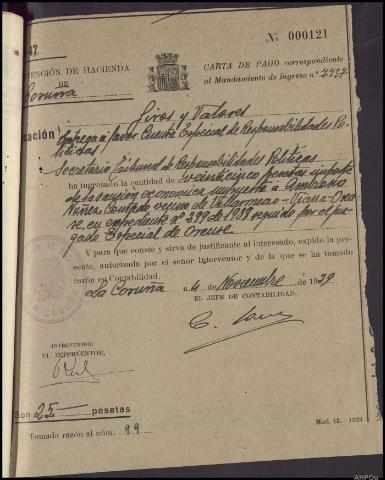 47
Nº 000121
VENCIÓN DE HACIENDA
DE
Coruña
CARTA DE PAGO correspondiente
al Mandamiento de Ingreso n.º 7437
Giros y Valores
cación Entrega a favor Cuenta Especial de Responsabilidades Po-
líticas
Secretario Tribunal de Responsabilidades Políticas
ha ingresado la cantidad de veinticinco pesetas importe
de la sanción economica impuesta a Ambrosio
Nuñez vecino de Villarmeao-Viana-Oren-
se, en expediente nº 299 de 1938 seguido por el Juz-
gado Especial de Orense
Y para que conste y sirva de justificante al interesado, expido la pre-
sente, autorizada por el señor Interventor y de la que se ha tomado
razón en Contabilidad.
La Coruña a 4 de Noviembre de 1939
EL JEFE DE CONTABILIDAD,
INTERVENIDO:
EL INTERVENTOR,
Son 25 pesetas
Tomada razón al núm. 99
Mod. 13. - 1933
AHPOu